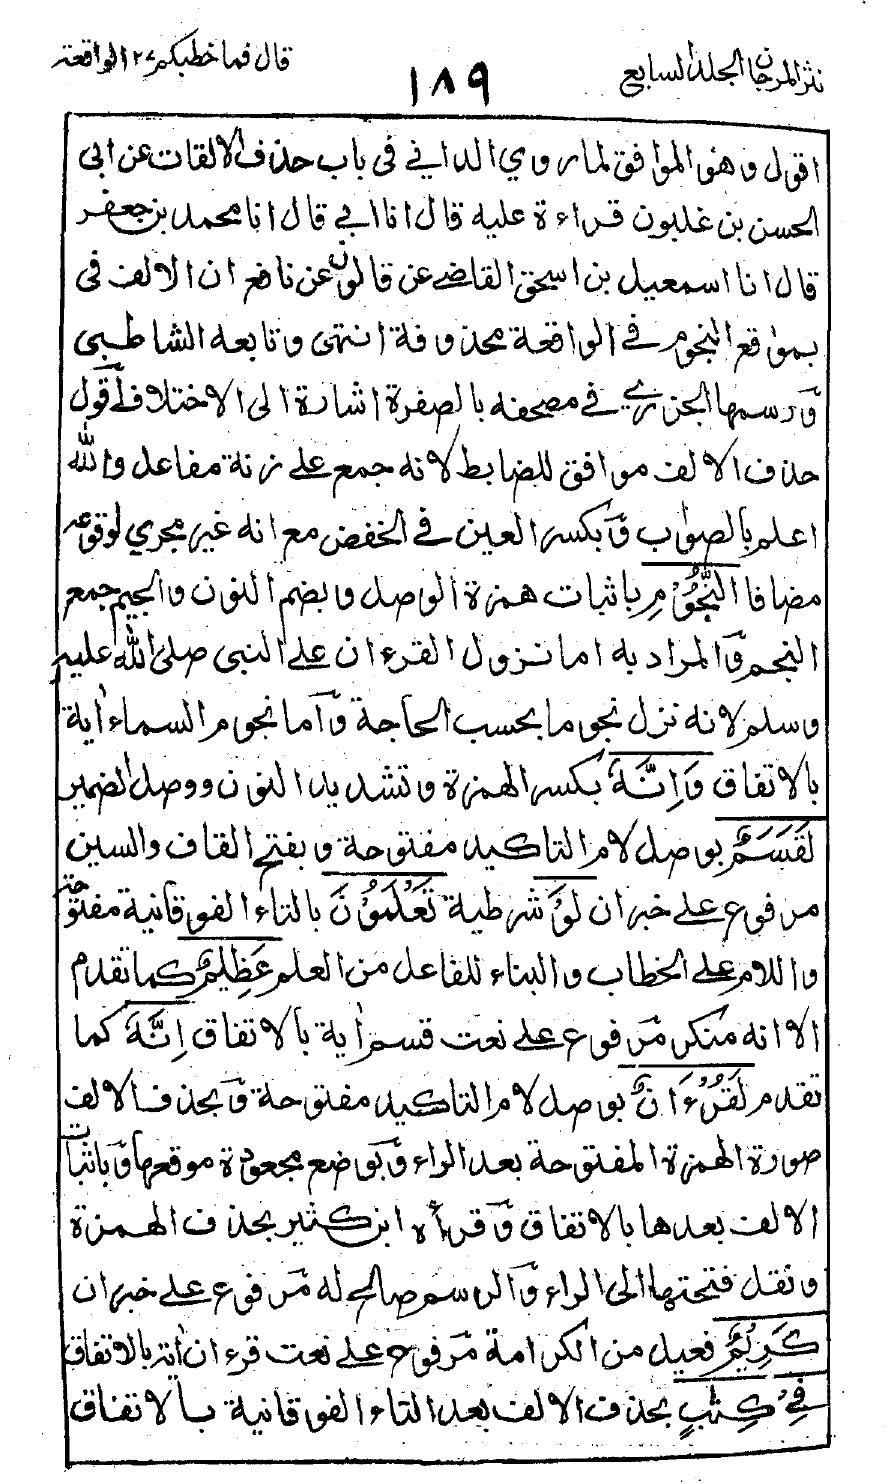 نثر المرجان الجلد السابع
١٨٩
قال فما خطبكم ٢٧ الواقعة
اقول وهو الموافق لما روي الداني في باب حذف الالفات عن ابي
الحسن بن غلبون قراءة عليه قال انا ابي قال انا محمد بن جعفر
قال انا اسمعيل بن اسحق القاضي عن قالون عن نافع ان الالف في
بموٰقع النجوم في الواقعة محذوفة انتهى وتابعه الشاطبي
ورسمها الجزري في مصحفه بالصفرة اشارة الى الاختلاف اقول
حذف الالف موافق للضابط لانه جمع على زنة مفاعل والله
اعلم بالصواب وبكسر العين في الخفض مع انه غير مجري لوقوعه
مضافا النُّجُوْمِ باثبات همزة الوصل وبضم النون والجيم جمع
النجم والمراد به اما نزول القرءان على النبي صلى الله عليه
وسلم لانه نزل نجوما بحسب الحاجة واما نجوم السماء اٰية
بالاتفاق وَاِنَّهٗ بكسر الهمزة وتشديد النون ووصل الضمير
لَقَسَمٌ بوصل لام التاكيد مفتوحة وبفتح القاف والسين
مرفوع على خبر ان لَوْ شرطية تَعْلَمُوْنَ بالتاء الفوقانية مفتوحة
واللام على الخطاب والبناء للفاعل من العلم عَظِيْمٌ كما تقدم
الا انه منكر مرفوع على نعت قسم اٰية بالاتفاق اِنَّهٗ كما
تقدم لَقُرْءَانٌ بوصل لام التاكيد مفتوحة وبحذف الالف
صورة الهمزة المفتوحة بعد الراء وبوضع مجعودة موقعها وباثبات
الالف بعدها بالاتفاق وقرأه ابن كثير بحذف الهمزة
ونقل فتحتها الى الراء والرسم صالح له مرفوع على خبر ان
كَرِيْمٌ فعيل من الكرامة مرفوع على نعت قرءان اٰية بالاتفاق
فِيْ كِتٰبٍ بحذف الالف بعد التاء الفوقانية بالاتفاق